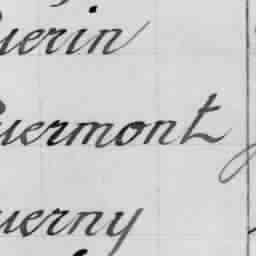 uerin
uermont
uerny